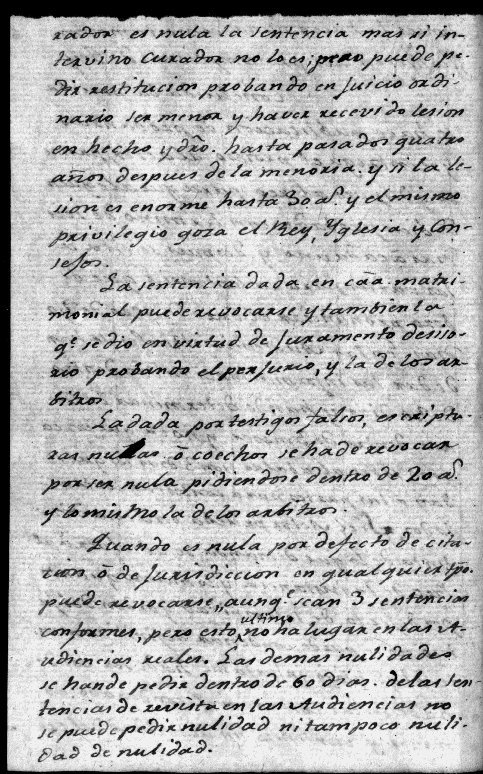 rador es nula la sentencia mas si in-
tervino curador no lo es; pero puede pe-
dir restitucion probando en Juicio ordi-
nario ser menor y haver recevido lesion
en hecho y dro. hasta pasados quatro
años despues de la menoria: y si la le-
sion es enorme hasta 30 as. y el mismo
privilegio goza el Rey, Yglesia y Con-
sejos.
La sentencia dada en caa. matri-
monial puede revocarse y tambien la
qe. se dio en virtud de Juramento desiso-
rio probando el perJurio, y la de los ar-
bitros
La dada por testigos falsos, escriptu-
ras nulas ô coechos se ha de revocar
por ser nula pidiendose dentro de 20 as.
y lo mismo la de los arbitros.
Quando es nula por defecto de cita-
cion ô de Jurisdiccion en qualquier tpo.
puede revocarse, aunqe. sean 3 sentencias
conformes, pero esto ultimo no ha lugar en las A-
udiencias reales. Las demas nulidades
se han de pedir dentro de 60 dias. de las sen-
tencias de revista en las Audiencias no
se puede pedir nulidad ni tampoco nuli-
dad de nulidad.